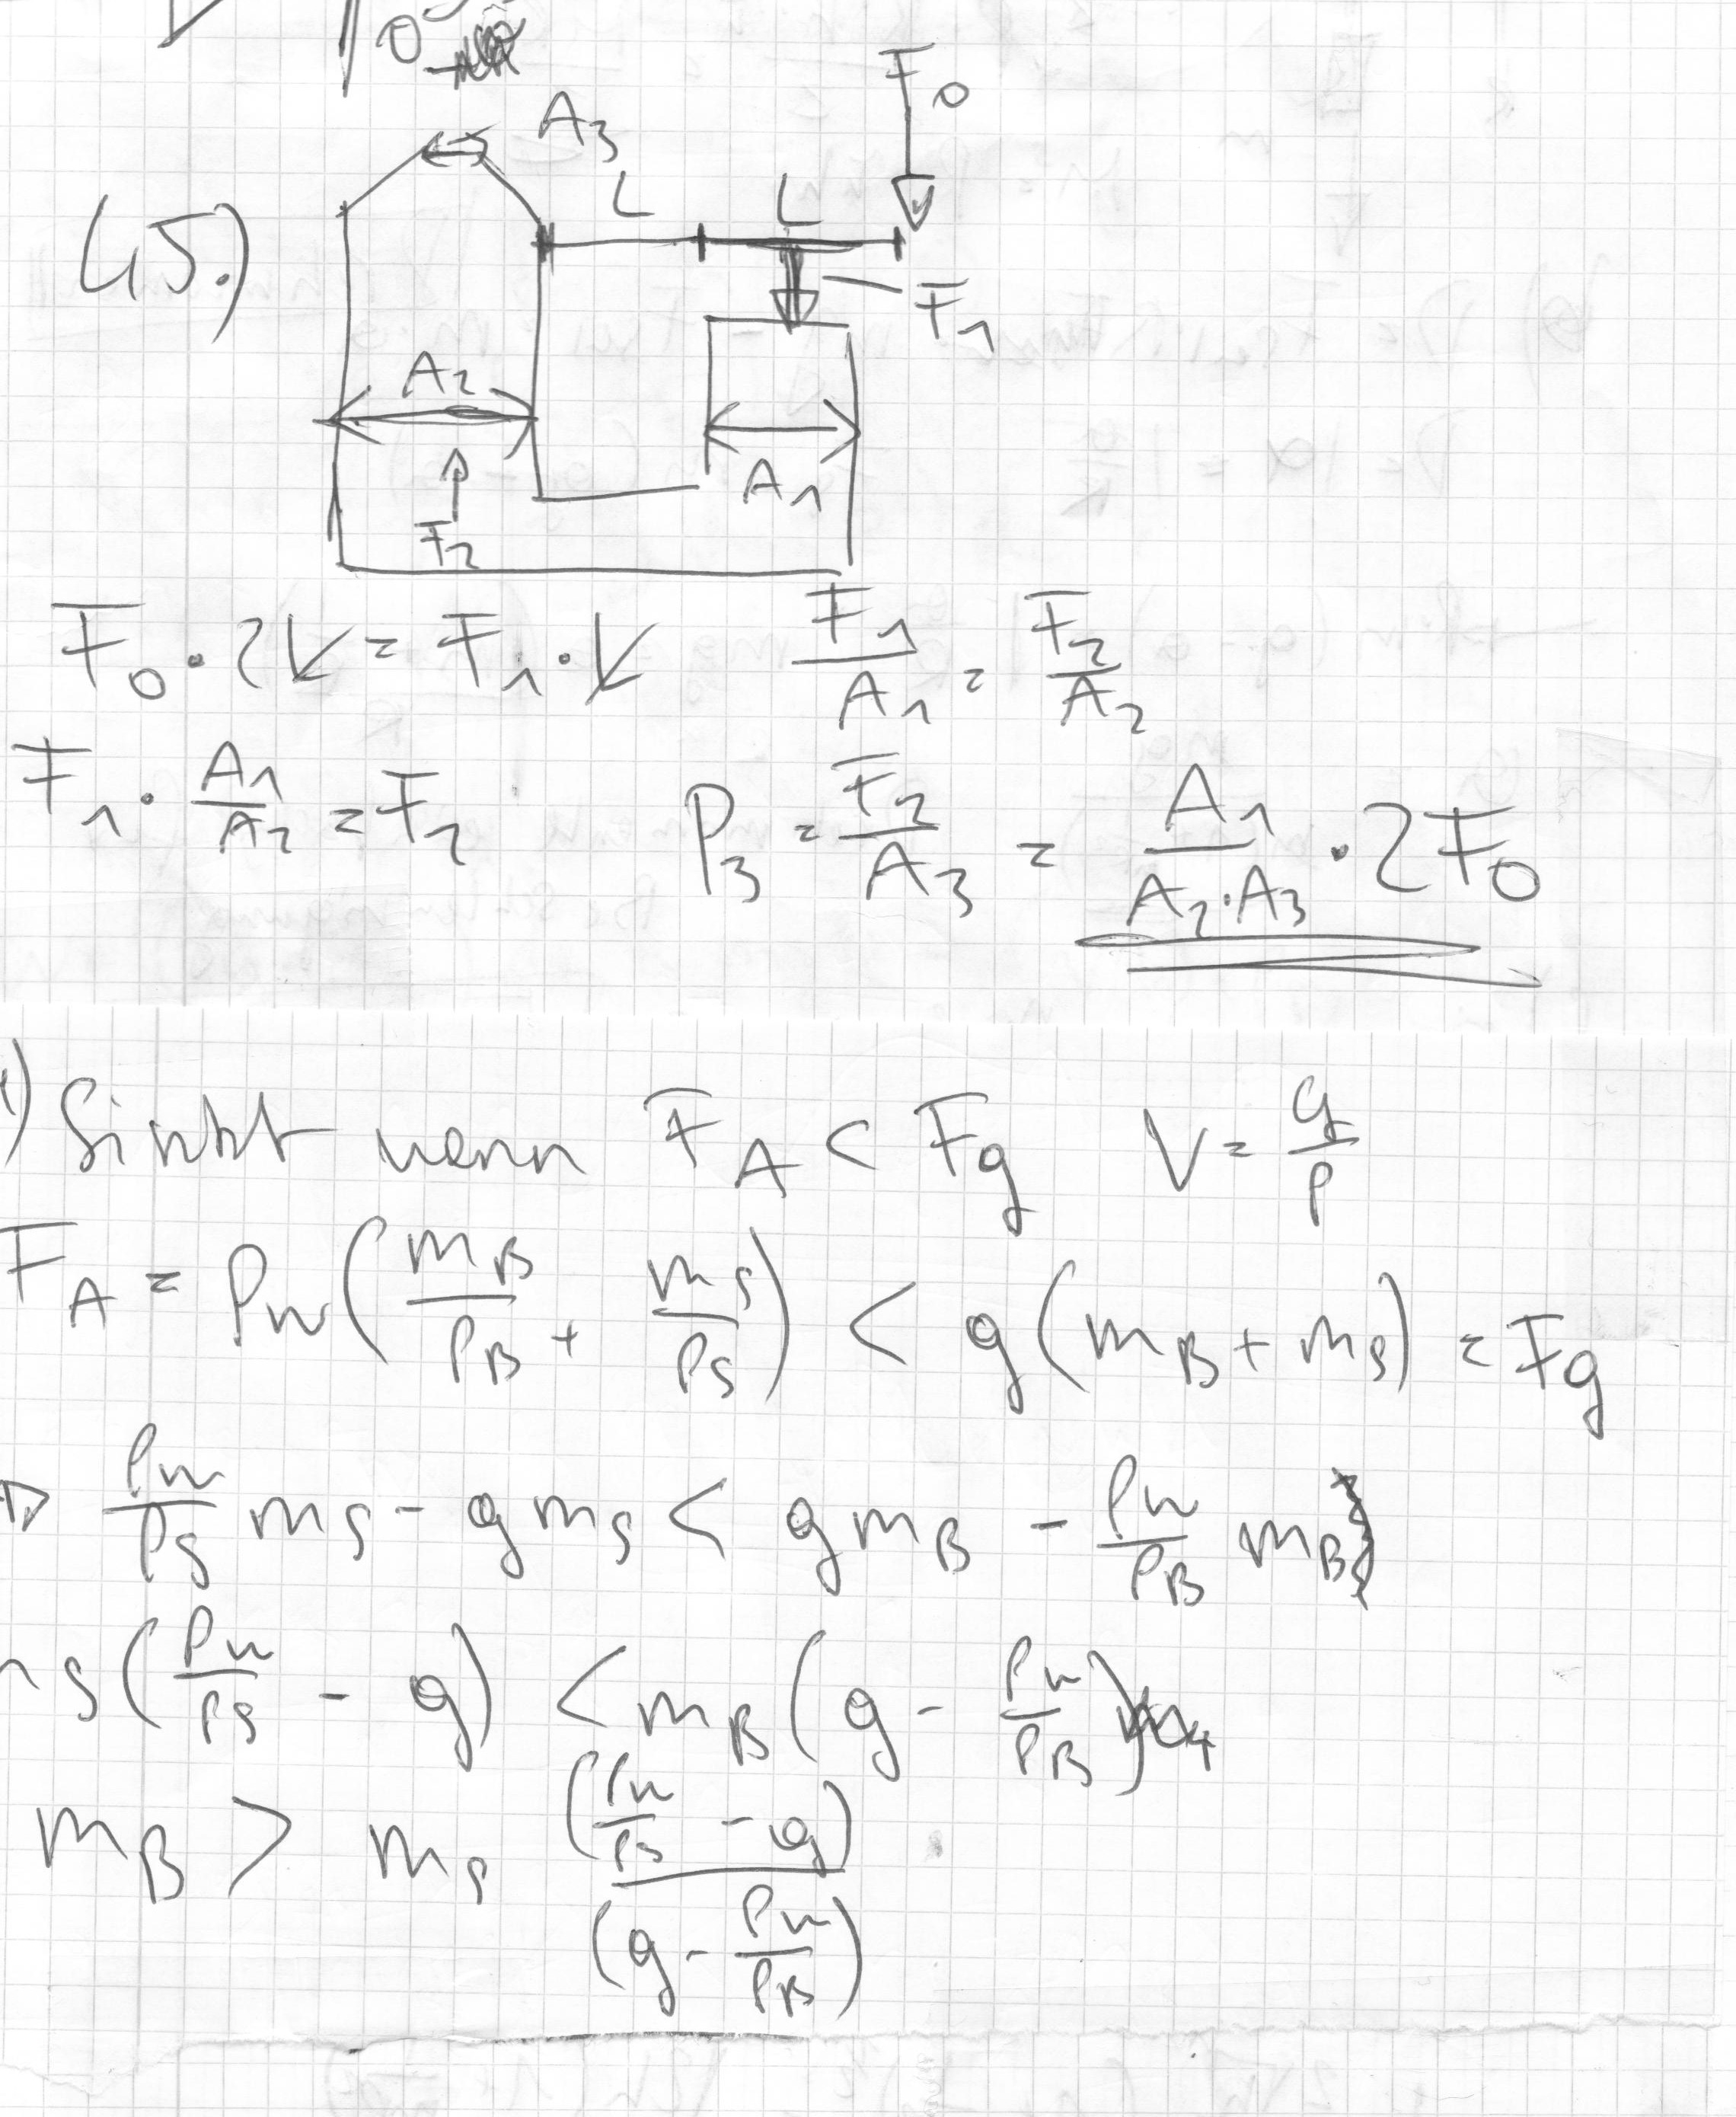 0
F₀
A₃
45.)
L
L
F₁
A₂
A₁
F₂
F₀ · 2L = F₁ · L
F₁/A₁ = F₂/A₂
F₁ · A₁/A₂ = F₂
P₃ = F₂/A₃ = A₁/(A₂·A₃) · 2F₀
) Sinkt wenn F_A < Fg V = g/ρ
F_A = ρw(m_B/ρ_B + m_s/ρ_s) < g(m_B + m_s) = Fg
ρw/ρs ms - g ms < g m_B - ρw/ρ_B m_B
s(ρw/ρs - g) < m_B(g - ρw/ρ_B)
m_B > m_s (ρw/ρs - g)/(g - ρw/ρ_B)